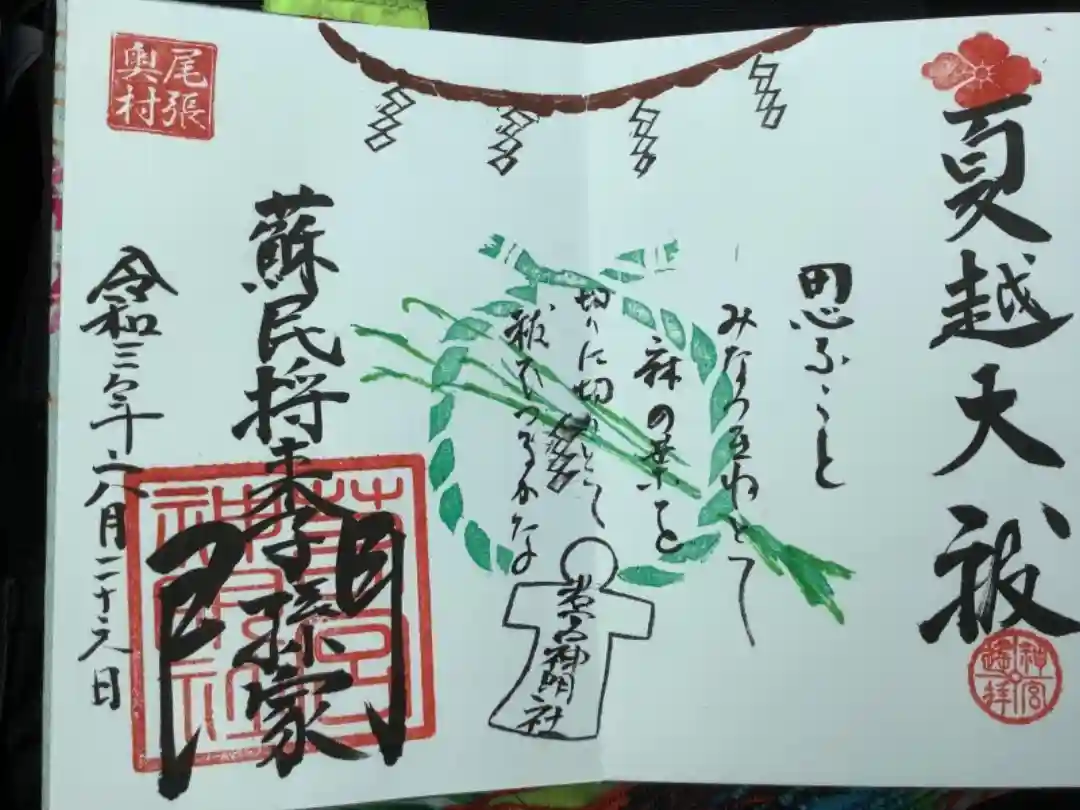 夏越大祓
神宮遥拝
思ふこと
みなつきねとて
麻の葉を
切りに切り
祓ひつるかな
若宮神明社
蘇民将来子孫家門
若宮神明社
令和三年六月二十六日
尾張奥村